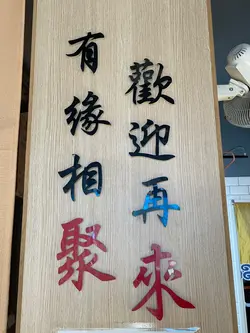 歡迎再來
有緣相聚